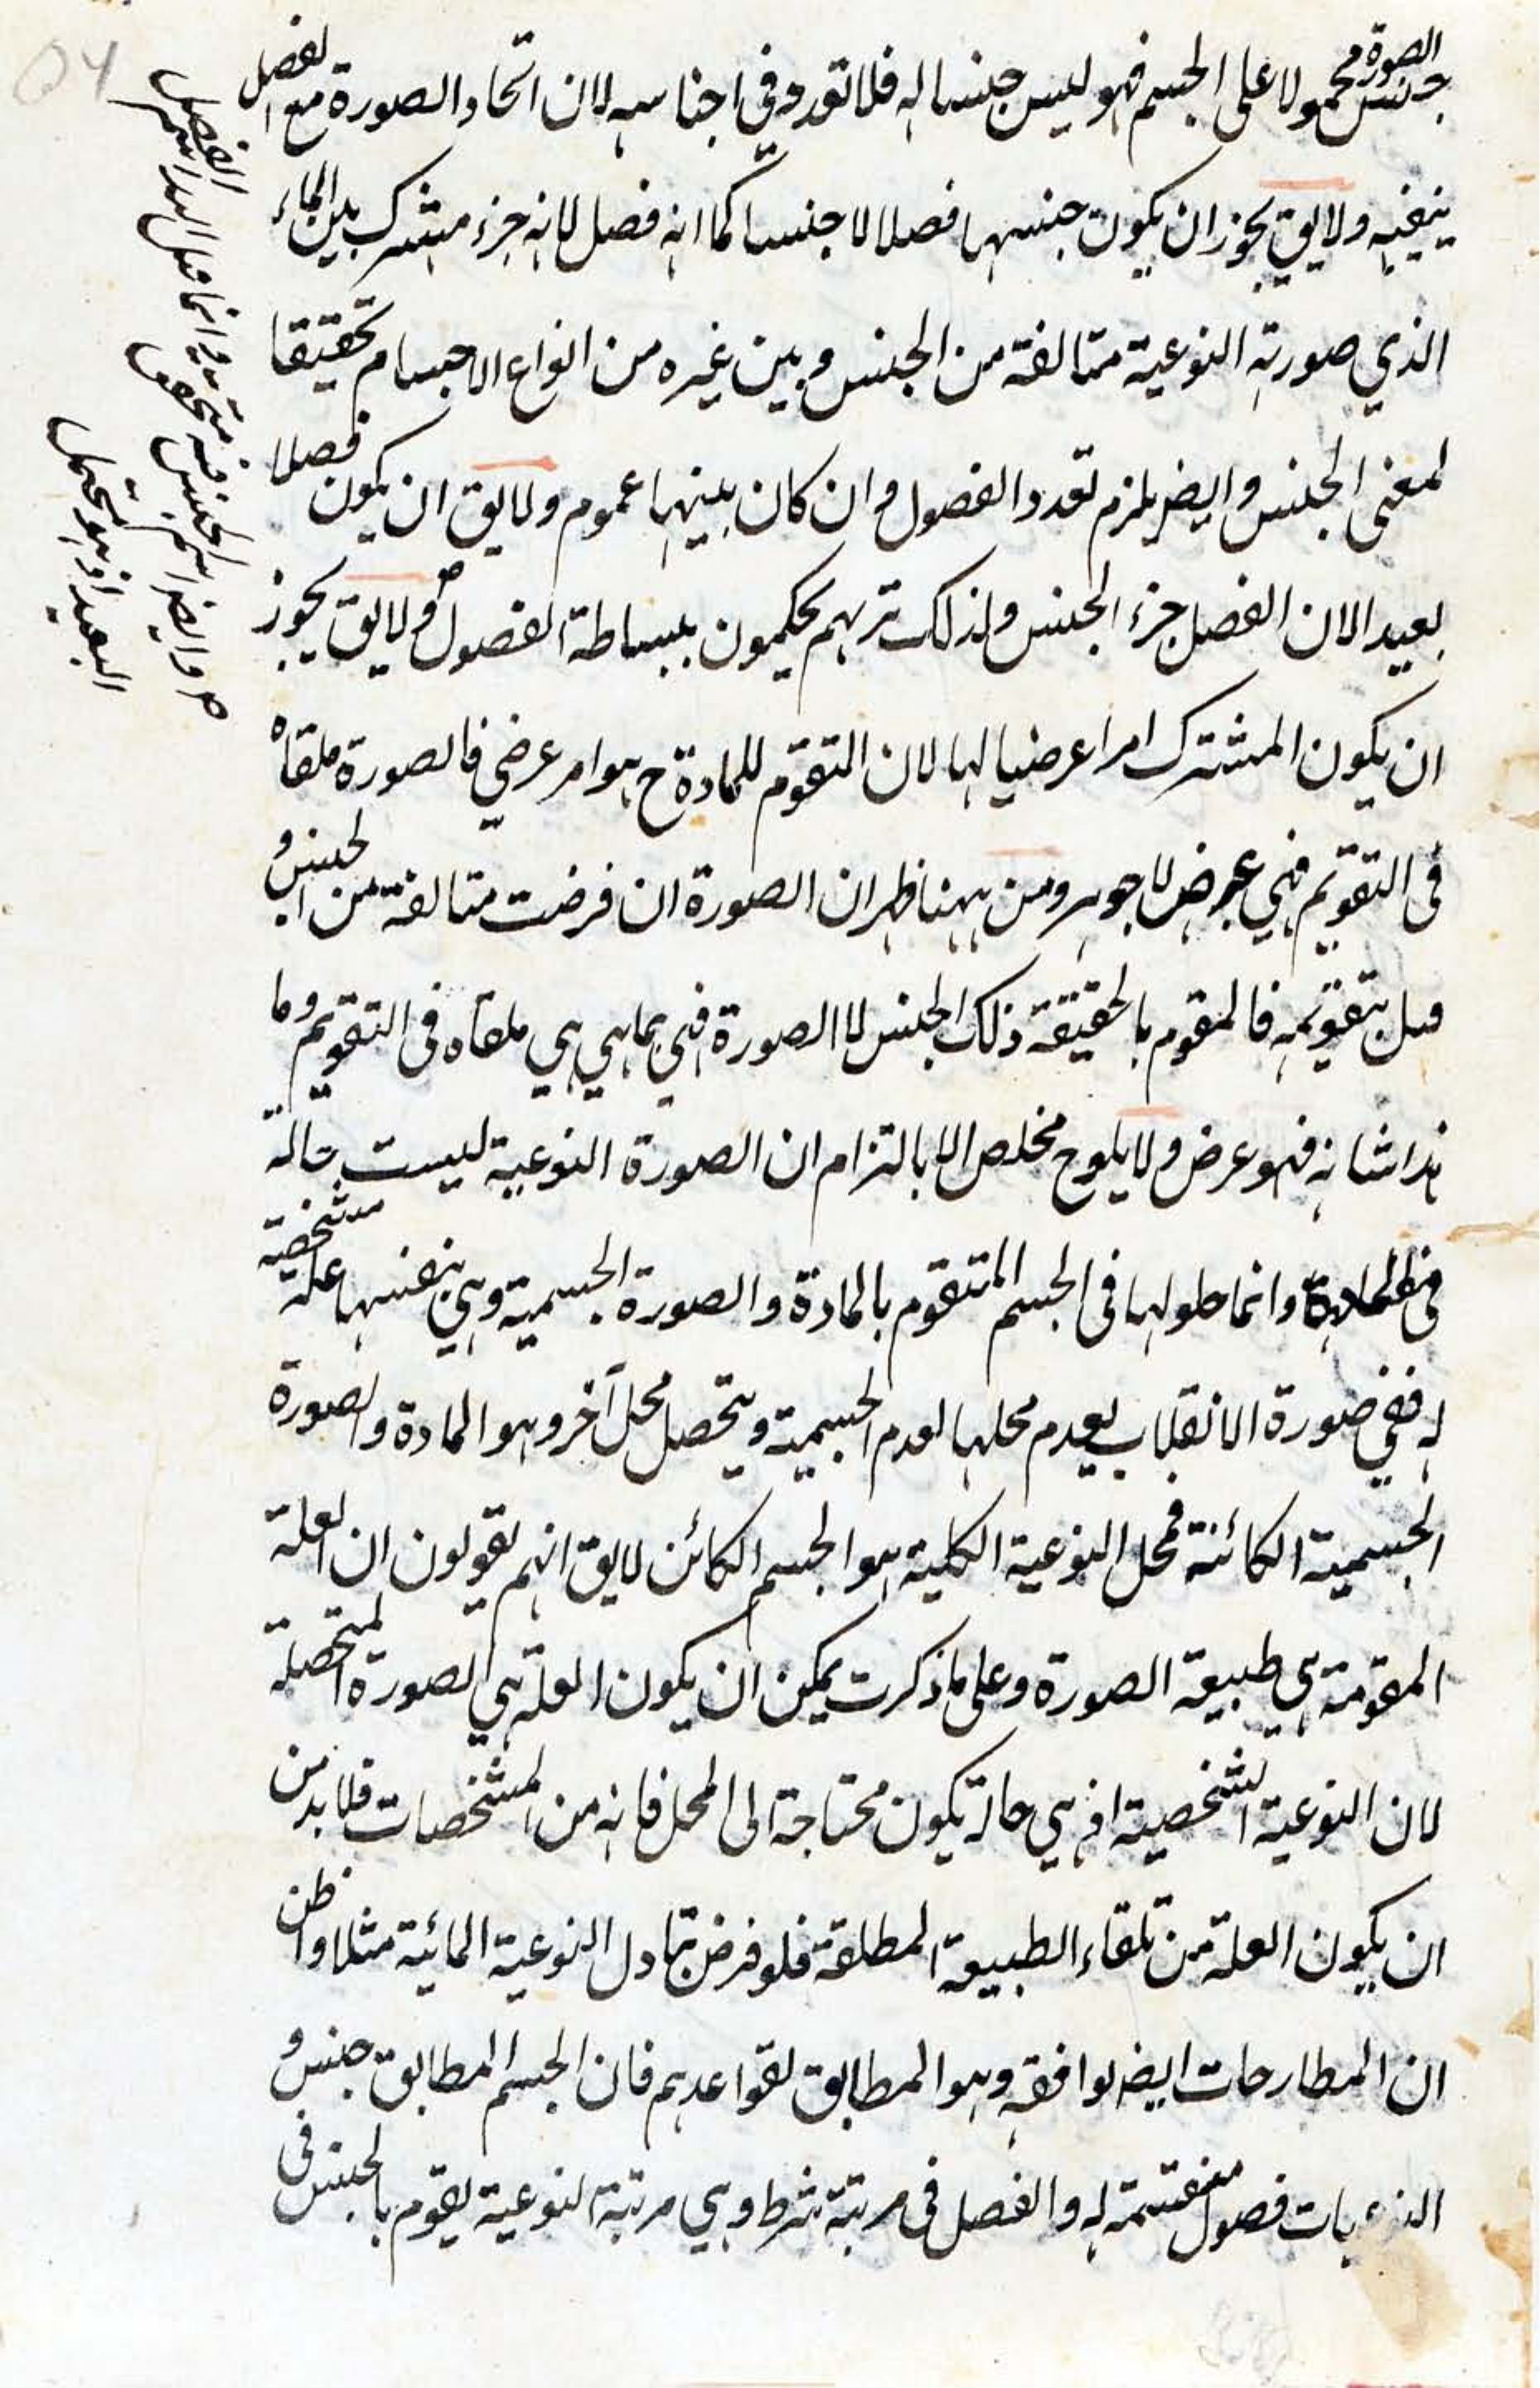 جنس الصورة محمولا على الجسم فهو ليس جنسا له فلا تقدح في اجناسه لان اتحاد الصورة مع الفصل
ينفيه ولا يق يجوز ان يكون جنسها فصلا لا جنسا كما انه فصل لانه جزء مشترك بين الماء
الذي صورته النوعية متالفة من الجنس وبين غيره من انواع الاجسام تحقيقا
لمعنى الجنس وايضر يلزم تعدد الفصول وان كان بينهما عموم ولا يق ان يكون فصلا
بعيدا لان الفصل جزء الجنس ولذلك تريهم يحكمون ببساطة الفصول ولا يق يجوز
ان يكون المشترك امرا عرضيا لها لان التقوم للمادة ح هو امر عرضي فالصورة ملقاه
فى التقويم فهي عرض لا جوهر ومن ههنا ظهر ان الصورة ان فرضت متالفة من الجنس و
قيل بتقويمه فالمقوم بالحقيقة ذلك الجنس لا الصورة فهي بما هي هي ملقاه فى التقويم وما
هذا شانه فهو عرض ولا يلوح مخلص الا بالتزام ان الصورة النوعية ليست حالة
فى المادة وانما حلولها فى الجسم المتقوم بالمادة والصورة الجسمية وهي بنفسها علة مشخصية
له ففي صورة الانقلاب يعدم محلها لعدم الجسمية ويتحصل محل آخر وهو المادة والصورة
الجسمية الكائنة فمحل النوعية الكلية هو الجسم الكائن لا يق انهم يقولون ان العلة
المقومة هي طبيعة الصورة وعلى ما ذكرت يمكن ان يكون العلة هي الصورة المتحصلة
لان النوعية الشخصية اذ هي حالة يكون محتاجة الى المحل فانه من المشخصات فلا بد من
ان يكون العلة من تلقاء الطبيعة المطلقة فلو فرض تبادل النوعية المائية مثلا واظن
ان المطارحات ايضر يوافقه وهو المطابق لقواعدهم فان الجسم المطابق جنس و
النوعيات فصول منقسمة له والفصل فى مرتبة شرط وهي مرتبة النوعية يقوم بالجنس فى
الفصل
وايضر الجنس
البعيد اذ هو يتحمل